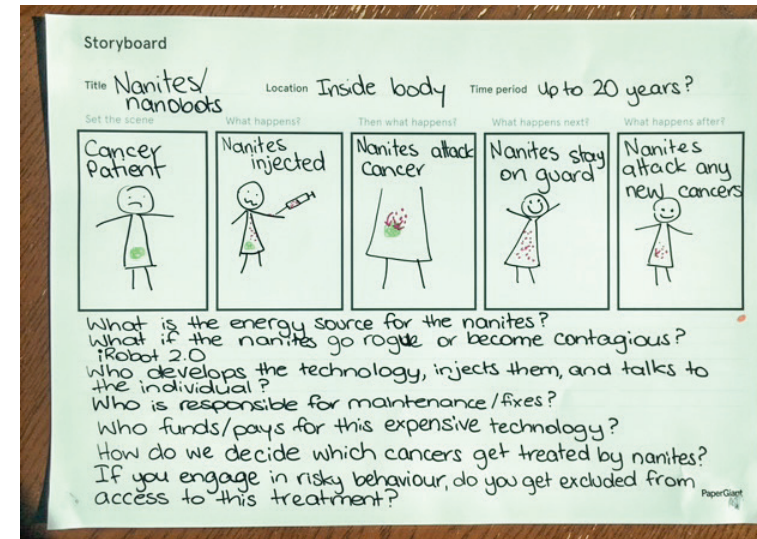 Storyboard
Title Nanites/ Location Inside body Time period Up to 20 years?
nanobots
Set the scene What happens? Then what happens? What happens next? What happens after?
Cancer
Patient
Nanites
injected
Nanites attack
cancer
Nanites stay
on guard
Nanites
attack any
new cancers
What is the energy source for the nanites?
What if the nanites go rogue or become contagious?
iRobot 2.0
Who develops the technology, injects them, and talks to
the individual?
Who is responsible for maintenance/fixes?
Who funds/pays for this expensive technology?
How do we decide which cancers get treated by nanites?
If you engage in risky behaviour, do you get excluded from
access to this treatment?
PaperGiant